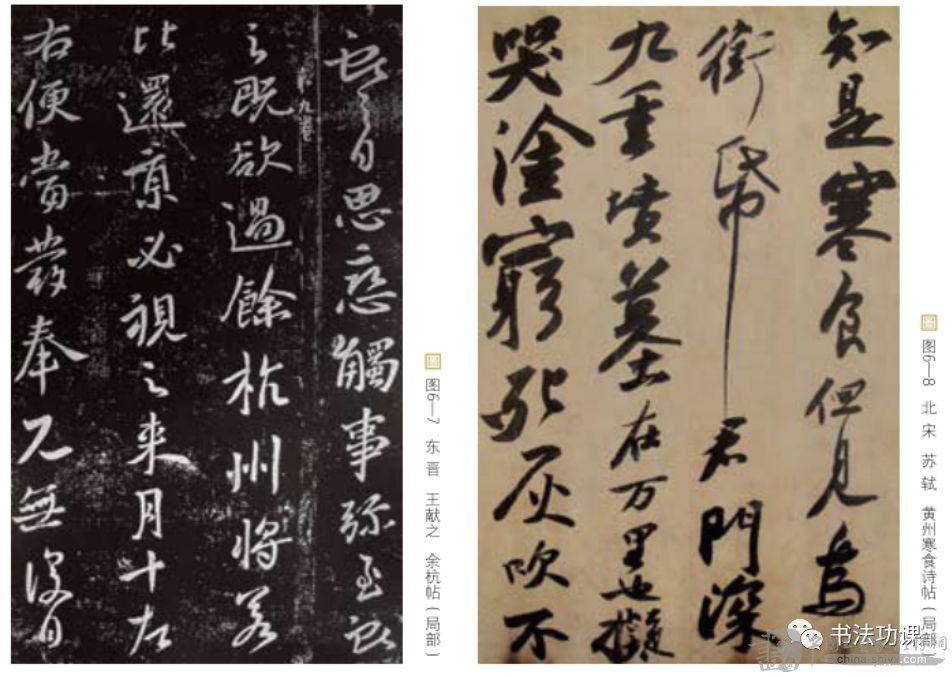 自思戀觸事弥至
之既欲過餘杭州將若
比還京必視之来月十左
右便當發奉兄無復日
图6—7 东晋 王献之 余杭帖(局部)
知是寒食但見烏
銜帋君門深
九重墳墓在万里也擬
哭塗窮死灰吹不
图6—8 北宋 苏轼 黄州寒食诗帖(局部)
书法功课